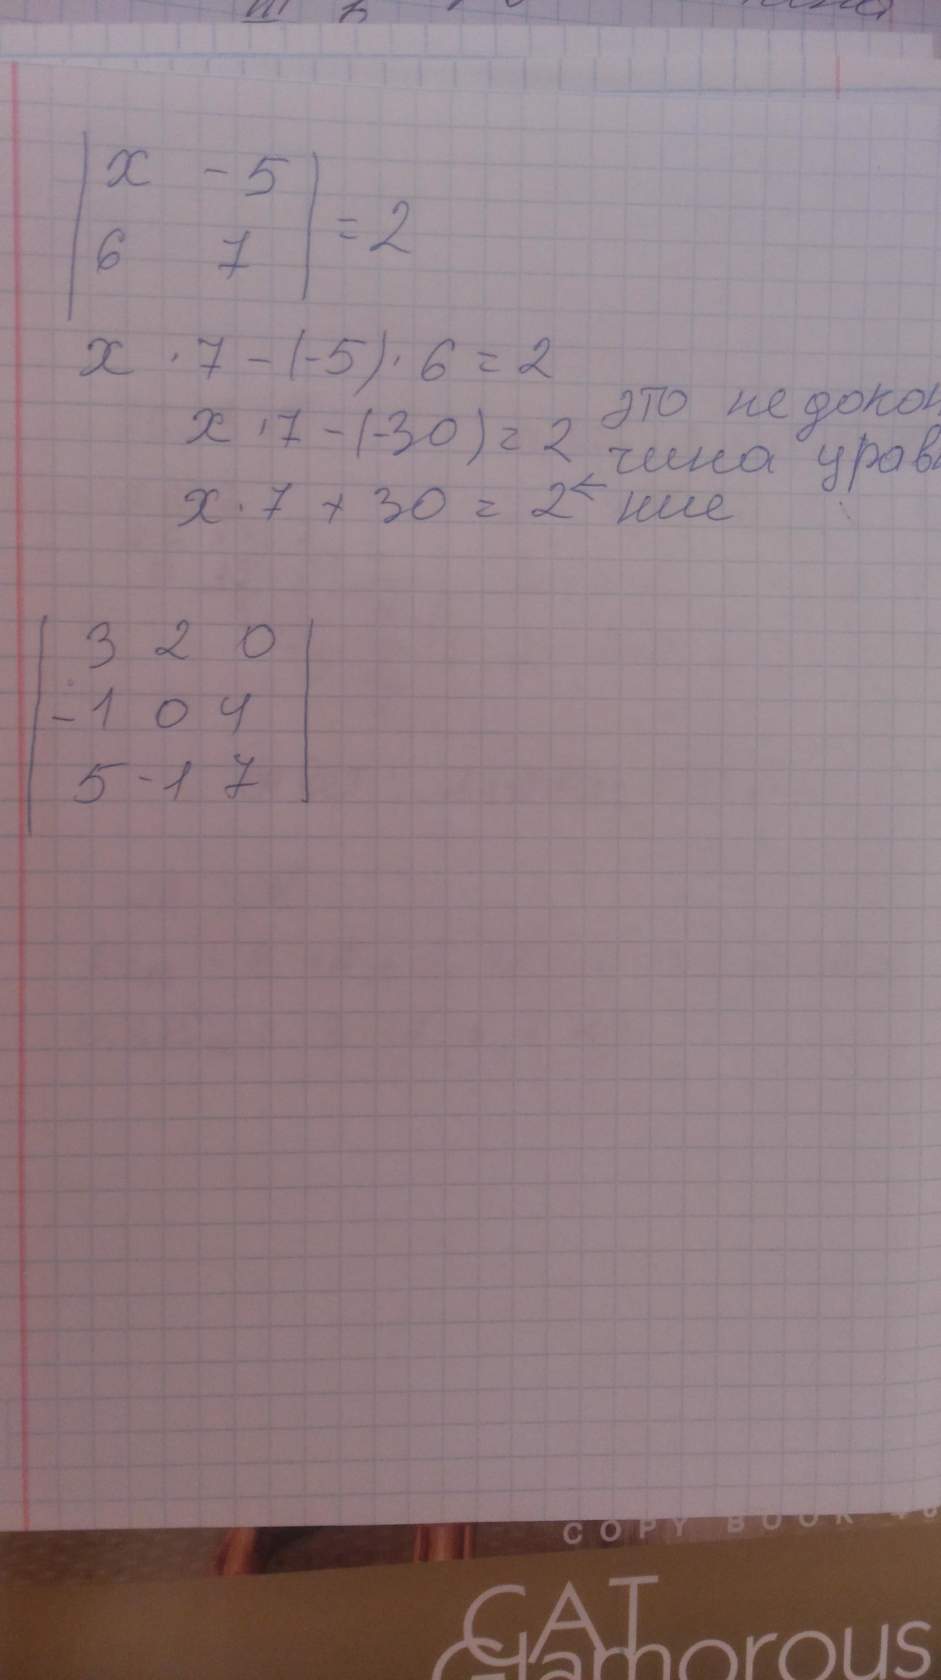 x -5
6 7 = 2
x · 7 - (-5) · 6 = 2
x · 7 - (-30) = 2
x · 7 + 30 = 2 ←
это не докон
чина урав
ние
3 2 0
-1 0 4
5 -1 7
COPY BOOK
CAT
Glamorous